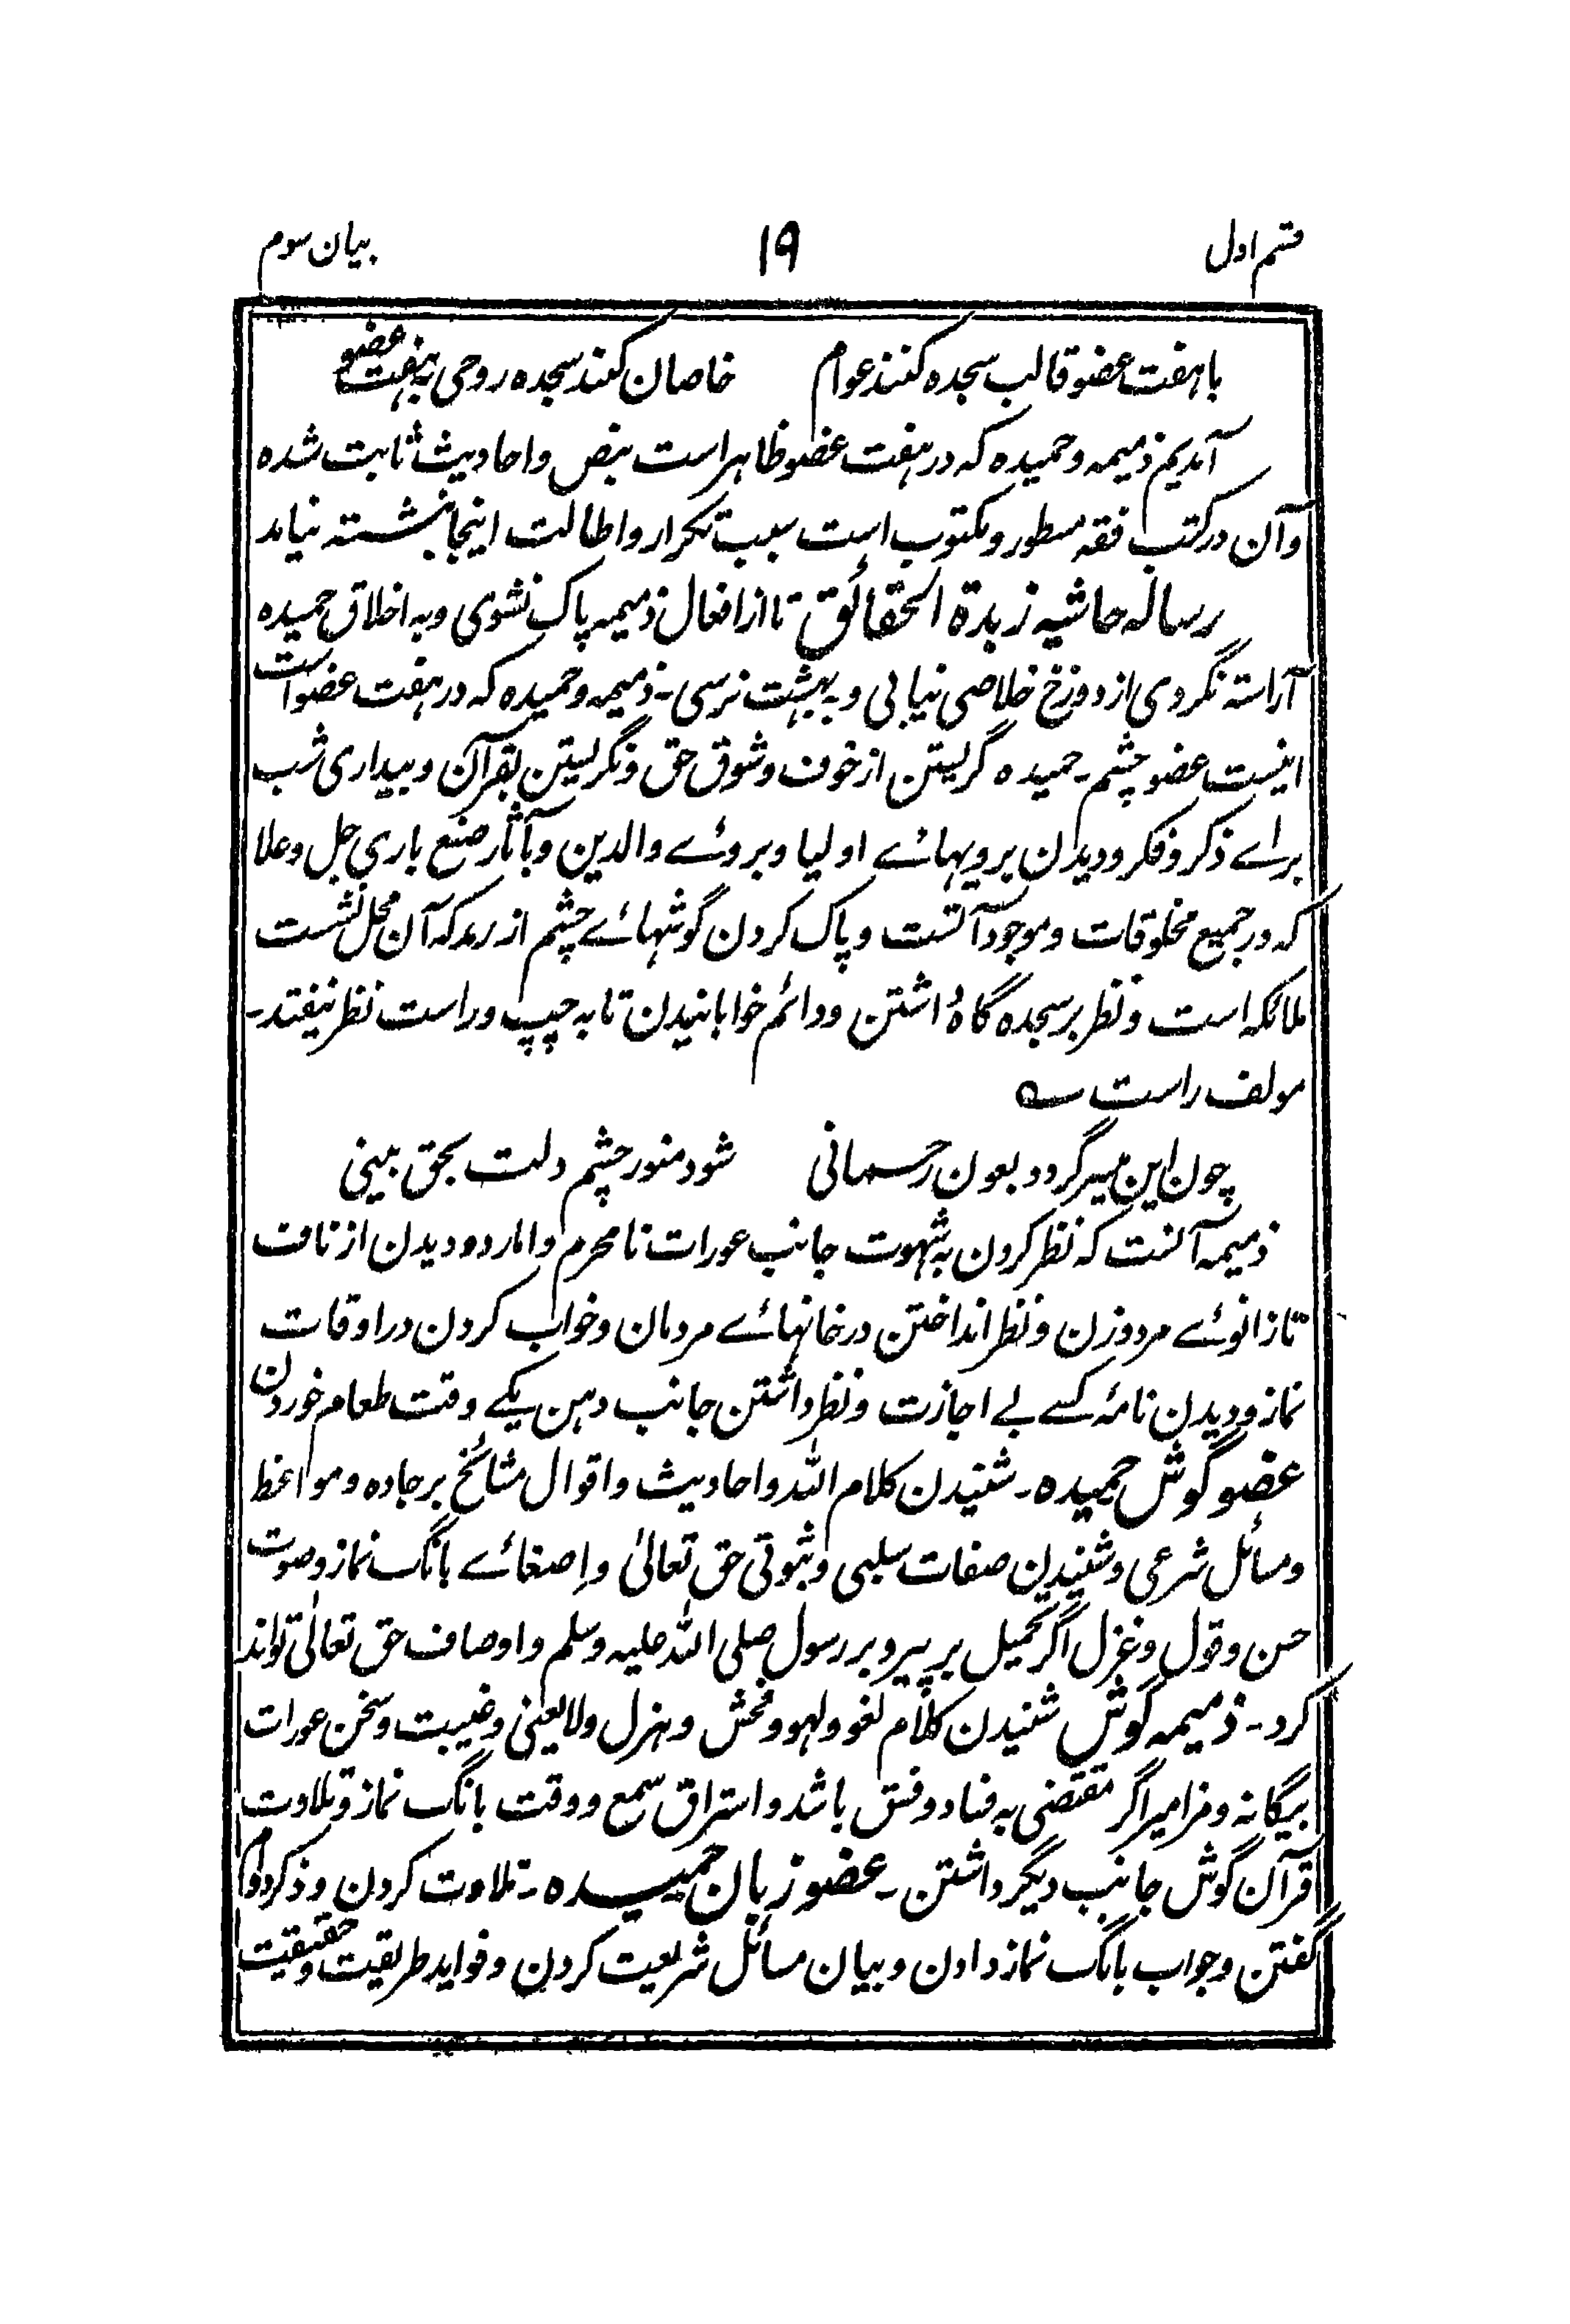 قسم اول ۱۹ بیان سوم
با هفت عضو قالب سجده کنند عوام خاصان کنند سجده روحی بهفت عضو
آمدیم ذمیمه و حمیده که در هفت عضو ظاهر است بنص و احادیث ثابت شده
و آن در کتب فقه مسطور و مکتوب است سبب تکرار و اطالت اینجا نبشته نیامد
رساله حاشیه زبدة الحقائق تا از افعال ذمیمه پاک نشوی و به اخلاق حمیده
آراسته نگردی از دوزخ خلاصی نیابی و به بهشت نرسی۔ ذمیمه و حمیده که در هفت عضو است
اینست عضو چشم۔ حمیده گریستن از خوف و شوق حق و نگریستن بقرآن و بیداری شب
برائے ذکر و فکر و دیدن بر ویهائے اولیا و بروئے والدین و بآثار صنع باری جل و علا
که در جمیع مخلوقات و موجود آنست و پاک کردن گوشهائے چشم از رمد که آن محل نشست
ملائکه است و نظر بر سجده گاه داشتن و دائم خوابانیدن تا به چپ و راست نظر نیفتد۔
مولف راست ؎
چون این میسر گردد بعون رحمانی شود منور چشم دلت بحق بینی
ذمیمه آنست که نظر کردن به شهوت جانب عورات نامحرم و امارد و دیدن از ناف
تا زانوئے مرد و زن و نظر انداختن در خانهائے مردمان و خواب کردن در اوقات
نماز و دیدن نامۂ کسے بے اجازت و نظر داشتن جانب دهن یکے وقت طعام خوردن
عضو گوش حمیده۔ شنیدن کلام الله و احادیث و اقوال مشائخ بر جاده و مواعظ
و مسائل شرعی و شنیدن صفات سلبی و ثبوتی حق تعالیٰ و اِصغائے بانگ نماز و صوت
حسن و قول و غزل اگر تحمیل بر پیر و بر رسول صلی الله علیه وسلم و اوصاف حق تعالیٰ تواند
کرد۔ ذمیمه گوش شنیدن کلام لغو و لهو و فحش و هزل و لا یعنی و غیبت و سخن عورات
بیگانه و مزامیر اگر مقتضی به فساد و فسق باشد و استراق سمع و وقت بانگ نماز و تلاوت
قرآن گوش جانب دیگر داشتن۔ عضو زبان حمیده۔ تلاوت کردن و ذکر دوام
گفتن و جواب بانگ نماز دادن و بیان مسائل شریعت کردن و فواید طریقت و حقیقت